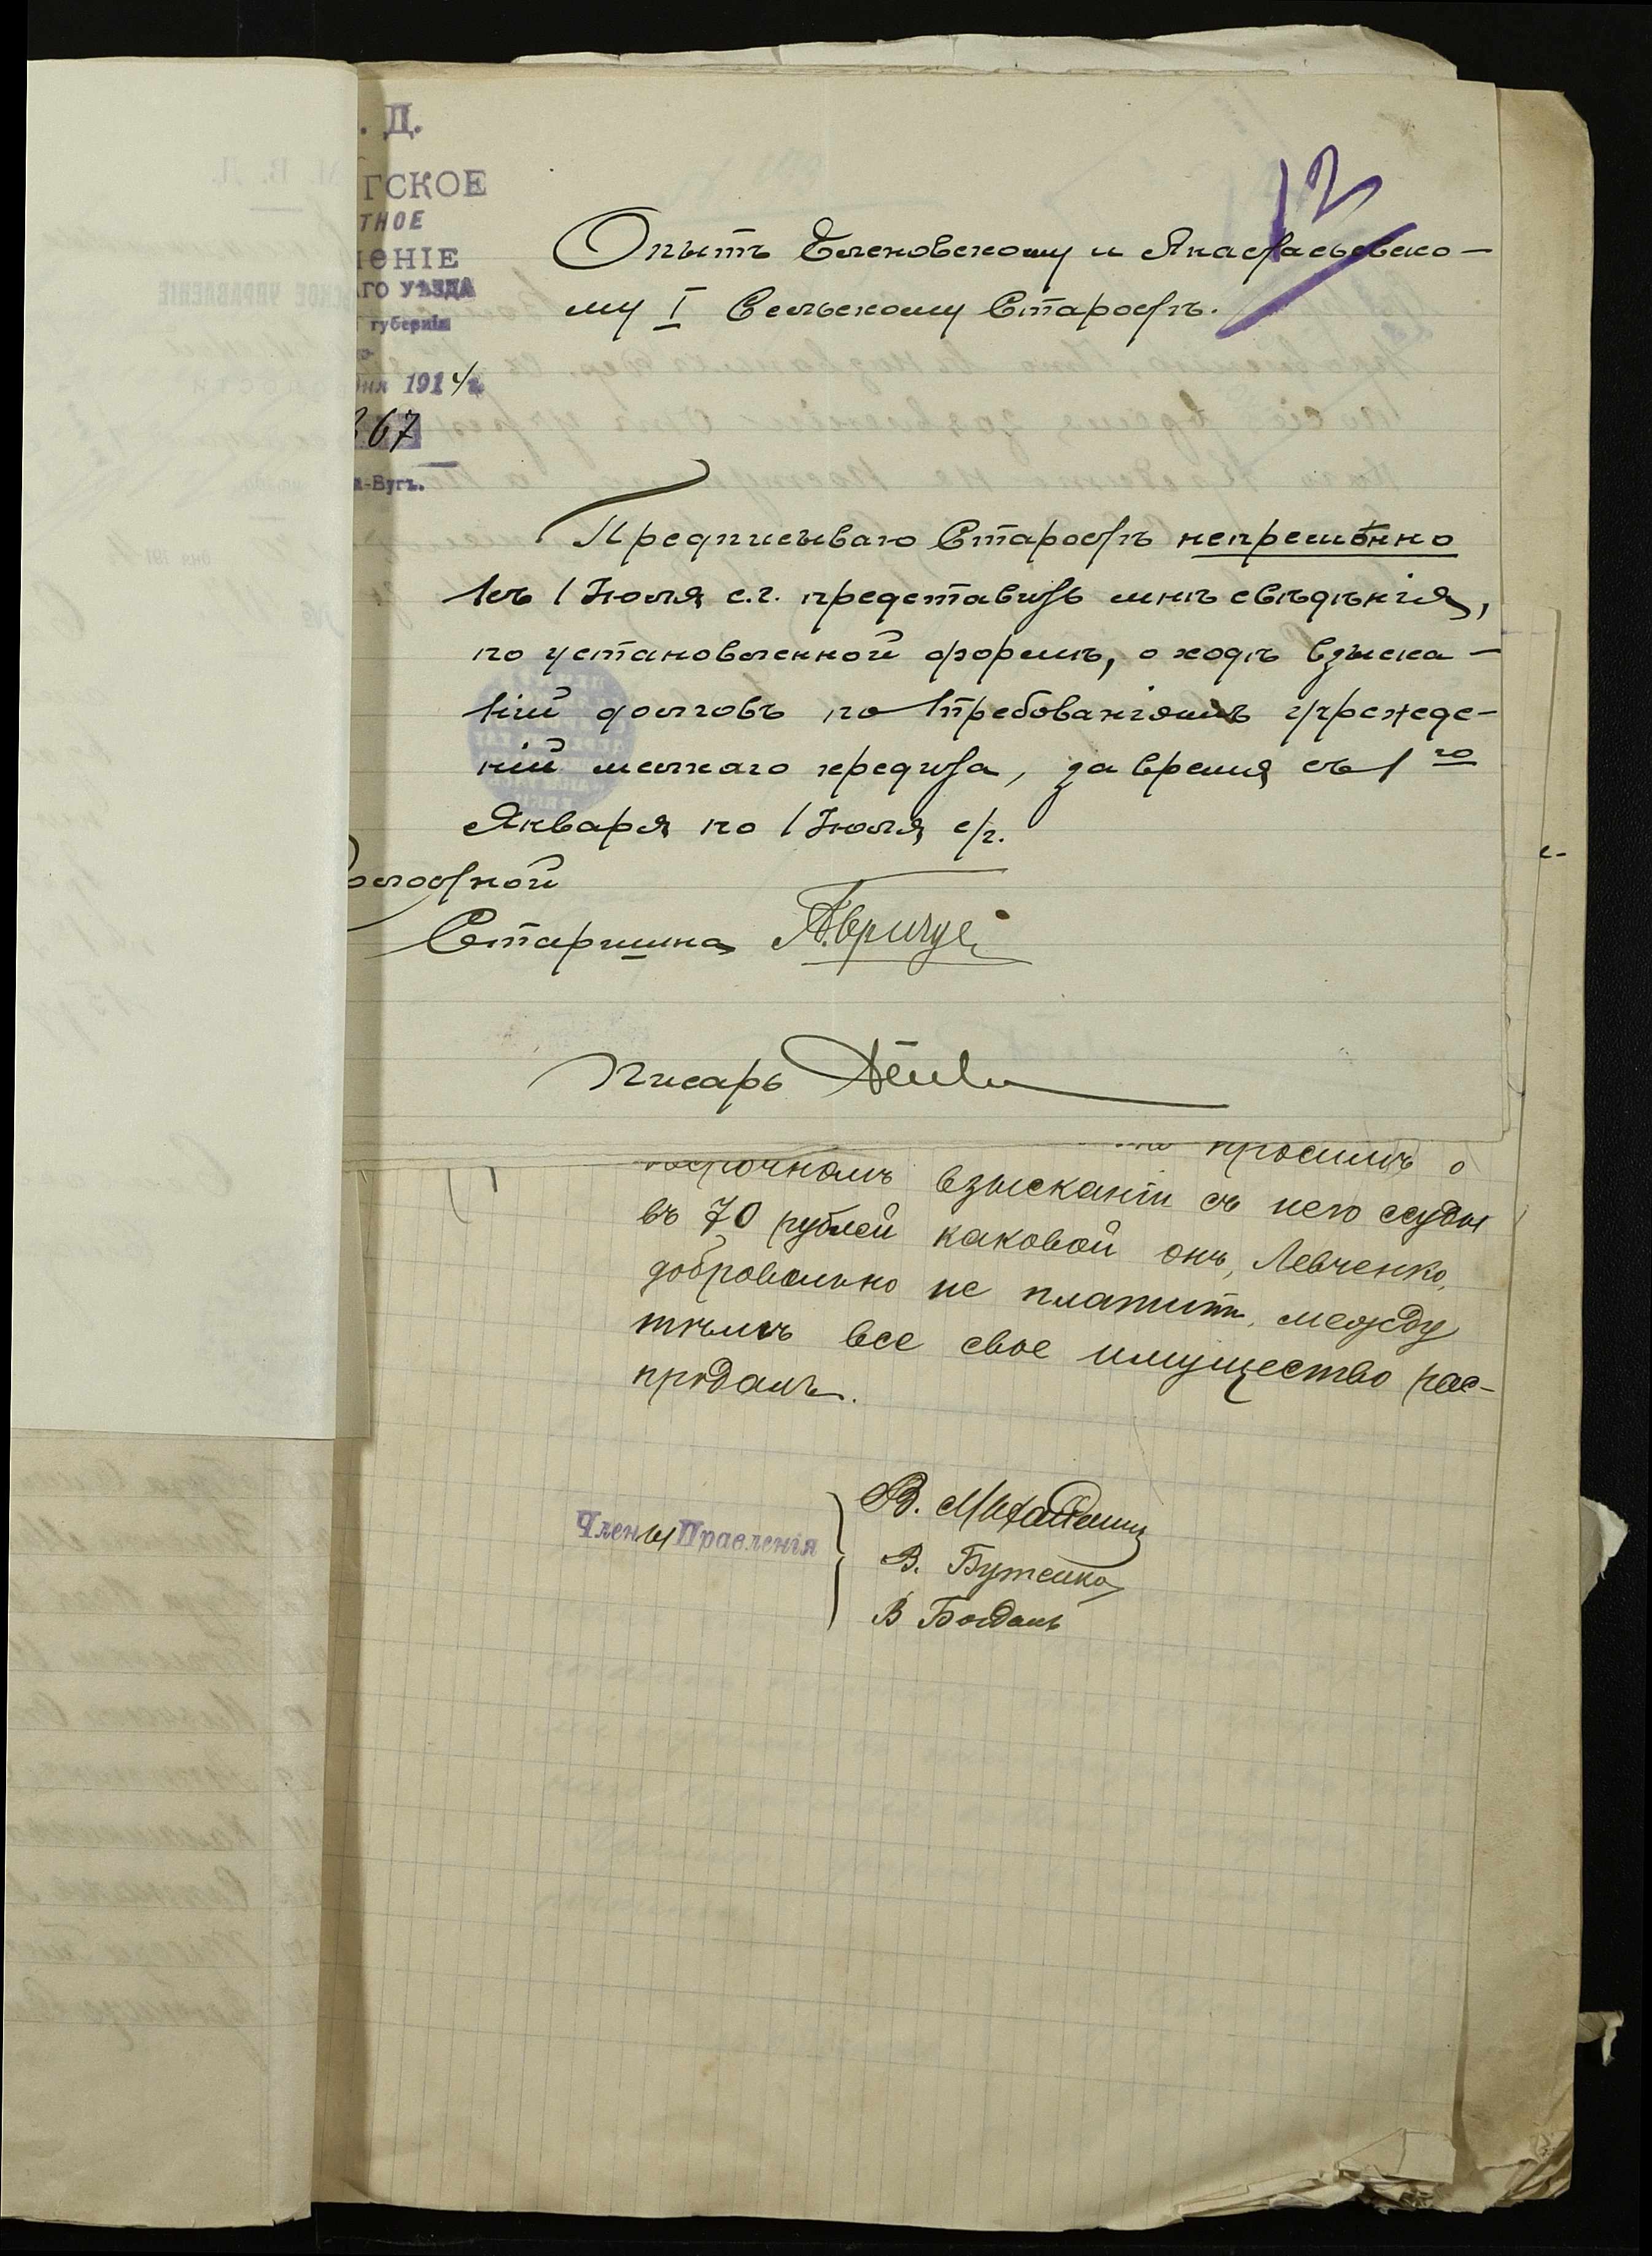 . Д.
ГСКОЕ
ТНОЕ
ЕНІЕ
АГО УѢЗДА
губерніи
дня 1914 г.
267
а-Бугъ.
12
Опытъ Еленовскому и Анастасьевско-
му I Сельскому Старостѣ.
Предписываю Старостѣ непремѣнно
къ 1 Іюля с.г. представить мнѣ свѣдѣнія,
по установленной формѣ, о ходѣ взыска-
ній долговъ по требованіямъ учрежде-
ній мелкаго кредита, за время съ 1го
Января по 1 Іюля с/г.
олостной
Старшина
Писарь
просимъ о
взысканіи съ него ссуды
въ 70 рублей каковой онъ, Левченко,
добровольно не платитъ, между
тѣмъ все свое имущество рас-
продалъ.
Члены Правленія
В.
В. Бутенко
В Богданъ